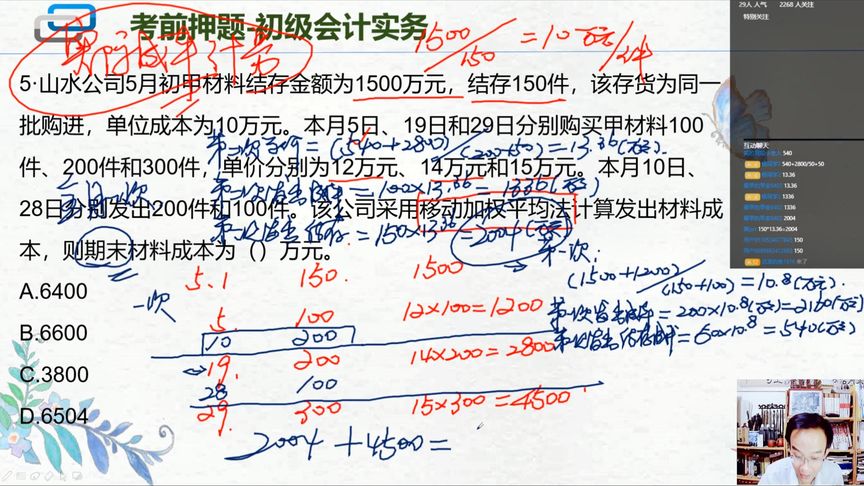 考前押题-初级会计实务
实际成本计量
1500/150 = 10万元/件
5·山水公司5月初甲材料结存金额为1500万元，结存150件，该存货为同一
批购进，单位成本为10万元。本月5日、19日和29日分别购买甲材料100
件、200件和300件，单价分别为12万元、14万元和15万元。本月10日、
28日分别发出200件和100件。该公司采用移动加权平均法计算发出材料成
本，则期末材料成本为（）万元。
A.6400
B.6600
C.3800
D.6504
=(540+2800)/(200+50)=13.36(万元).
=100×13.36=1336(万元)
=150×13.36=2004(万元)
第一次:
(1500+1200)/(150+100)=10.8(万元).
=200×10.8(万元)=2160(万元)
=50×10.8=540(万元)
一次
5.1 150. 1500
5. 100 12×100=1200
10 200
19. 200 14×200=2800
28 100
29. 300 15×300=4500
2004+4500=
29人 人气 2268 人关注
特别关注
互动聊天
540
540+2800/50+50
13.36
13.36
1336
1336
2004
150*13.36=2004
150
150
来了